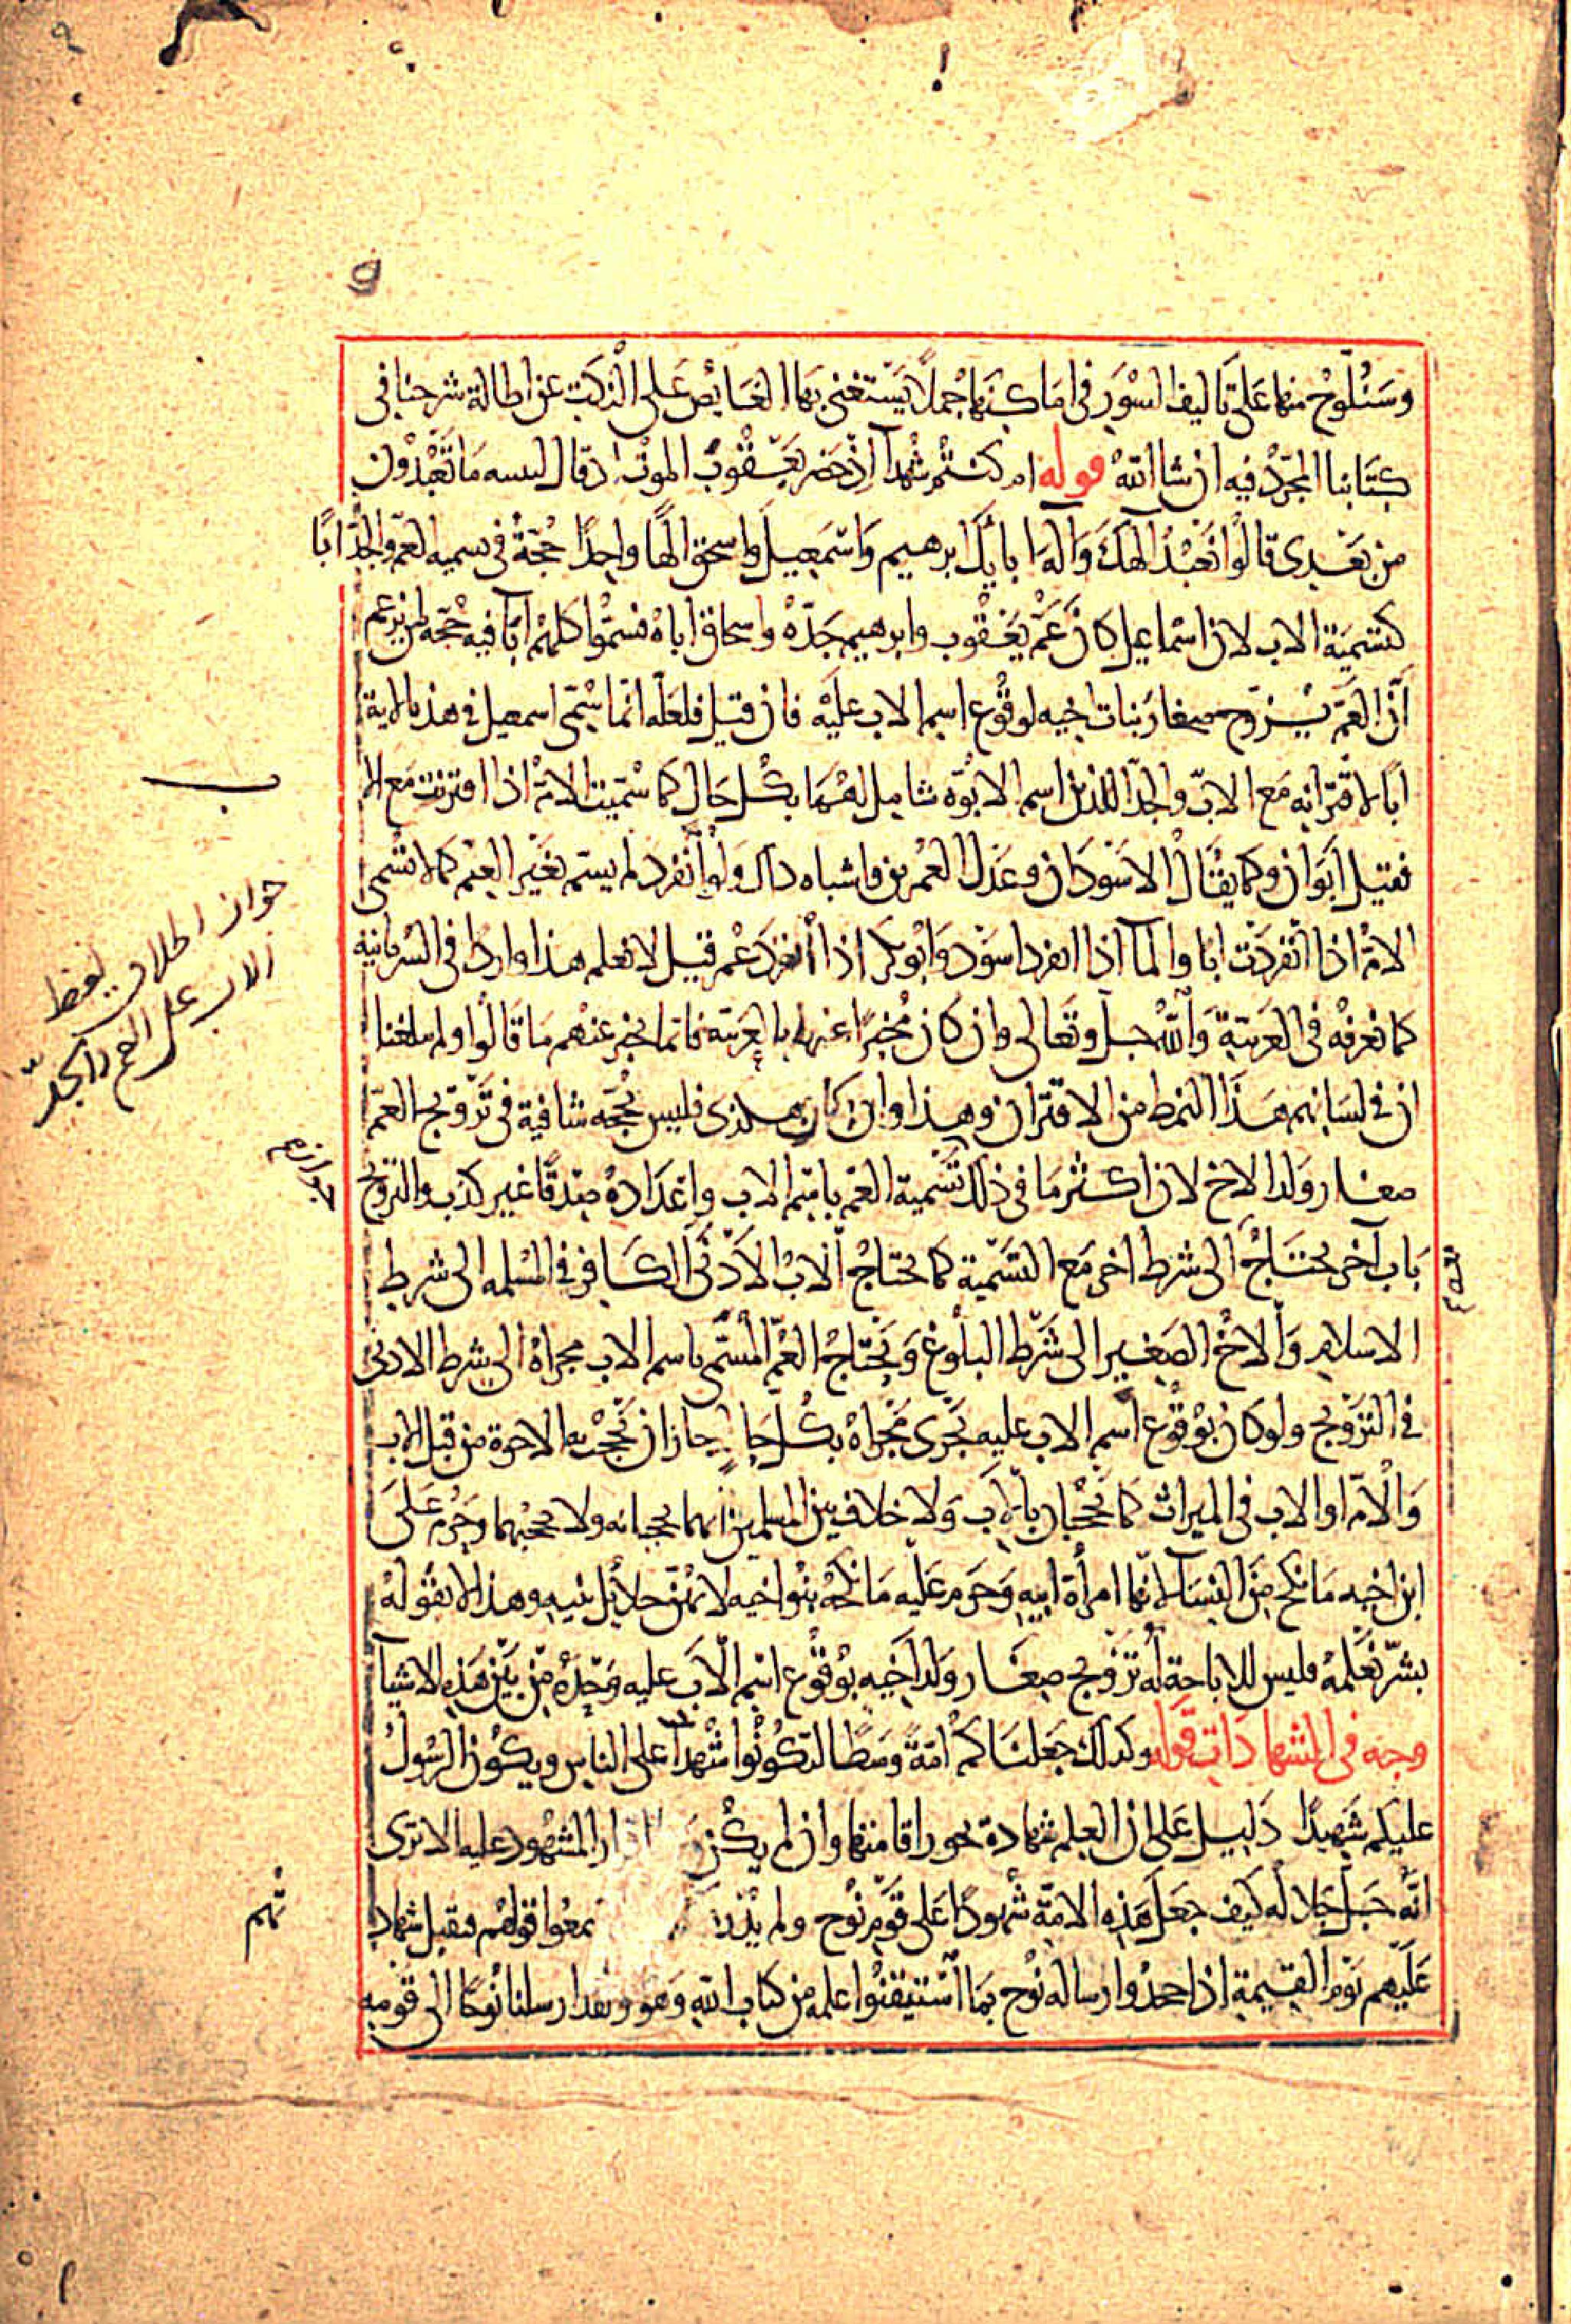 وسنلوح منها على تاليف السور فى اماكنها جملا يستغنى بها الغايص على النكت عن اطالة شرحنا فى
كتابنا المجرد فيه ان شا الله قوله ام كنتم شهدآ اذ حضر يعقوب الموت اذ قال لبنيه ما تعبدون
من بعدى قالوا نعبد الهك واله ابايك ابرهيم واسمعيل واسحق الها واحدا حجة فى تسميه العم والجد ابا
كتسمية الاب لان اسماعيل كان عم يعقوب وابرهيم جده واسحاق اباه فسموا كلهم ابا فيه حجة لمن زعم
ان العم يزوج صغار بنات اخيه لوقوع اسم الاب عليه فان قيل فلعله انما سمى اسمعيل فى هذه الاية
ابا لاقترانه مع الاب والجد اللذين اسم الابوة شامل لهما بكل حال كما سميت الام اذا اقترنت مع الا
فقيل ابوان وكما يقال الاسودان وعدل العمرين واشباه ذلك ولو انفرد لم يسم بغير العم كما لا تسمى
الام اذا انفردت ابا والمآ اذا انفرد اسود وابو بكر اذا انفرد عمر قيل لا نعلم هذا واردا فى السريانية
كما نعرفه فى العربية والله جل وتعالى وان كان مخبرا عنها بالعربية فانما يخبر عنهم ما قالوا ولم يبلغنا
ان فى لسانهم هذا النمط من الاقتران وهذا وان كان هكذى فليس بحجة شافية فى تزويج العم
صغار ولد الاخ لان اكثر ما فى ذلك تسمية العم باسم الاب واعداده صدقا غير كذب والتزويج
باب آخر يحتاج الى شرط اخر مع التسمية كما يحتاج الاب الادنى الكافر فى المسلمه الى شرط
الاسلام والاخ الصغير الى شرط البلوغ ويحتاج العم المسمى باسم الاب مجراه الى شرط الادنى
فى التزويج ولو كان بوقوع اسم الاب عليه يجرى مجراه بكل حال جاز ان تحجب به الاخوة من قبل الاب
والام او الاب فى الميراث كما يحجبان بالاب ولا خلاف بين المسلمين انهما يحجبانه ولا يحجبهما وحرم على
ابن اخيه ما نكح من النسآ لانها امرأة ابيه وحرم عليه ما نكحه بنوا اخيه لانهن حلايل بنيه وهذا لا يقوله
بشر نعلمه فليس للاباحة له تزويج صغار ولد اخيه بوقوع اسم الاب عليه وحده من بين هذه الاشيآ
وجه فى الشهادات قوله وكذلك جعلناكم امة وسطا لتكونوا شهدآ على الناس ويكون الرسول
عليكم شهيدا دليل على ان العلم شهادة يجوز اقامتها وان لم يكن اقرار المشهود عليه الا ترى
انه جل جلاله كيف جعل هذه الامة شهودا على قوم نوح ولم يدر معوا قولهم فيقبل شهاد
عليهم يوم القيمة اذا جحدوا رسالة نوح بما استيقنوا علمه من كتاب الله وهو ولقد ارسلنا نوحا الى قومه
جواز اطلاق لفظ
الاب على العم والجد